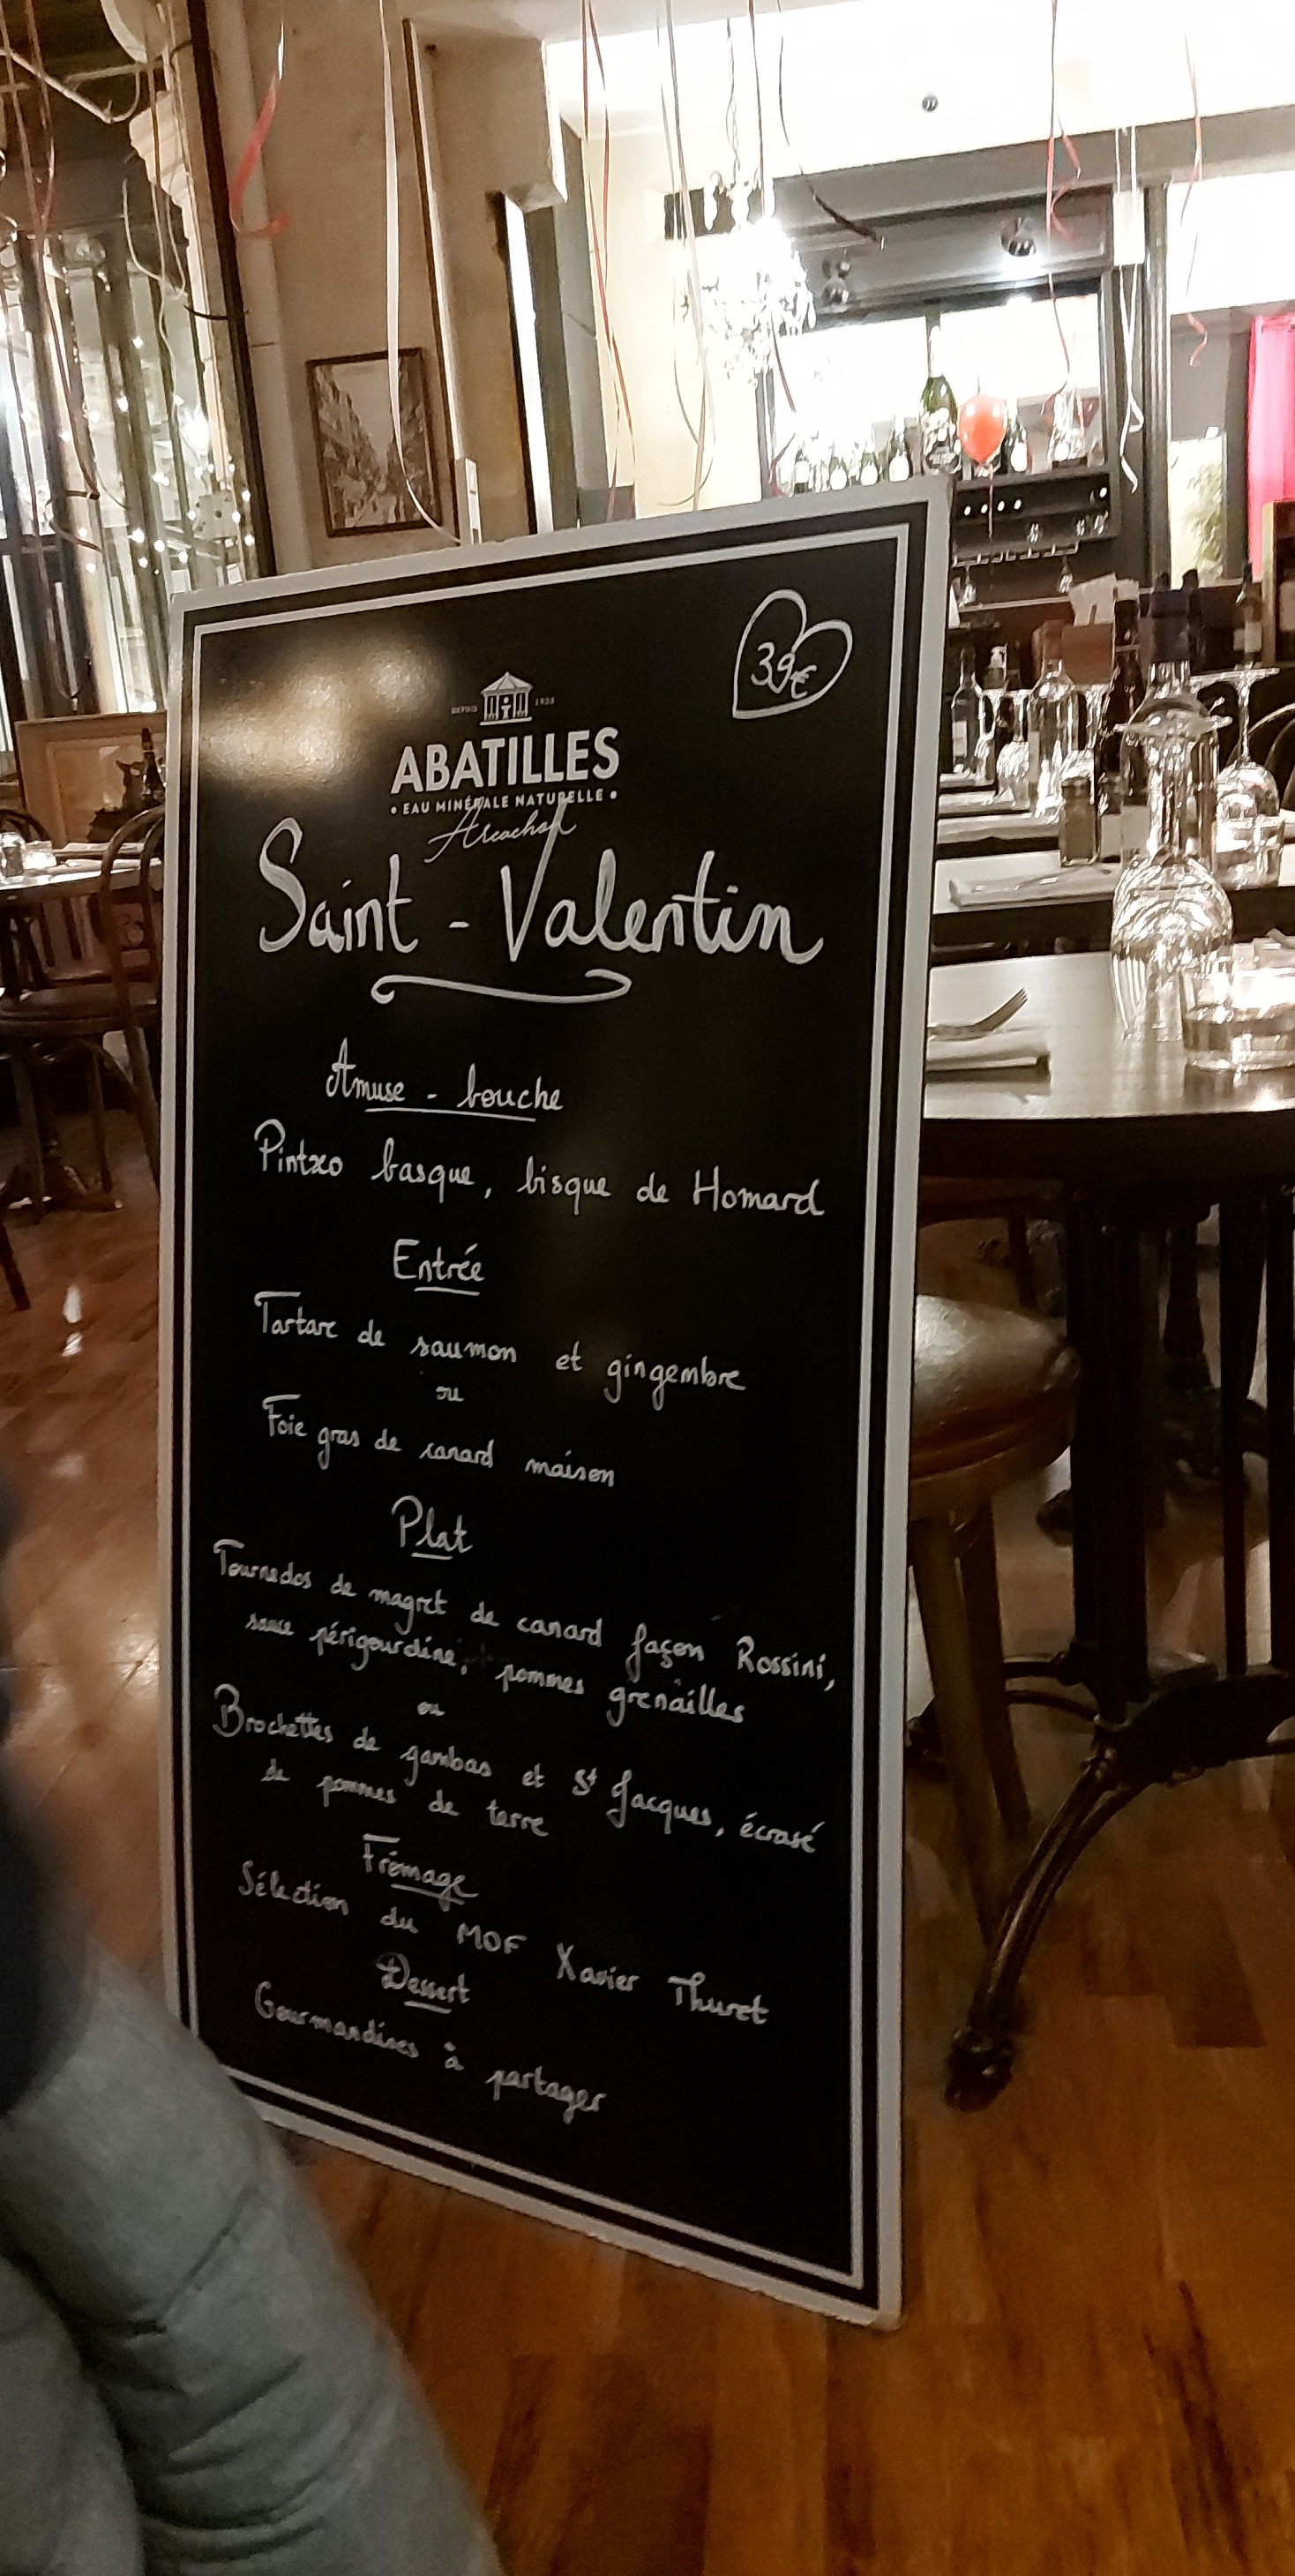 39€
DEPUIS 1925
ABATILLES
• EAU MINÉRALE NATURELLE •
Arcachon
Saint - Valentin
Amuse - bouche
Pintxo basque, bisque de Homard
Entrée
Tartare de saumon et gingembre
ou
Foie gras de canard maison
Plat
Tournedos de magret de canard façon Rossini,
sauce périgourdine, pommes grenailles
ou
Brochettes de gambas et St Jacques, écrasé
de pommes de terre
Frômage
Sélection du MOF Xavier Thuret
Dessert
Gourmandises à partager